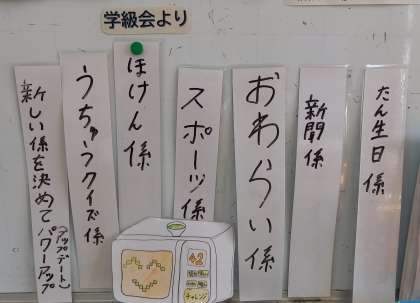 学級会より
たん生日係
新聞係
おわらい係
スポーツ係
ほけん係
うちゅうクイズ係
新しい係を決めてパワーアップ
(アップデート)
42
チャレンジ